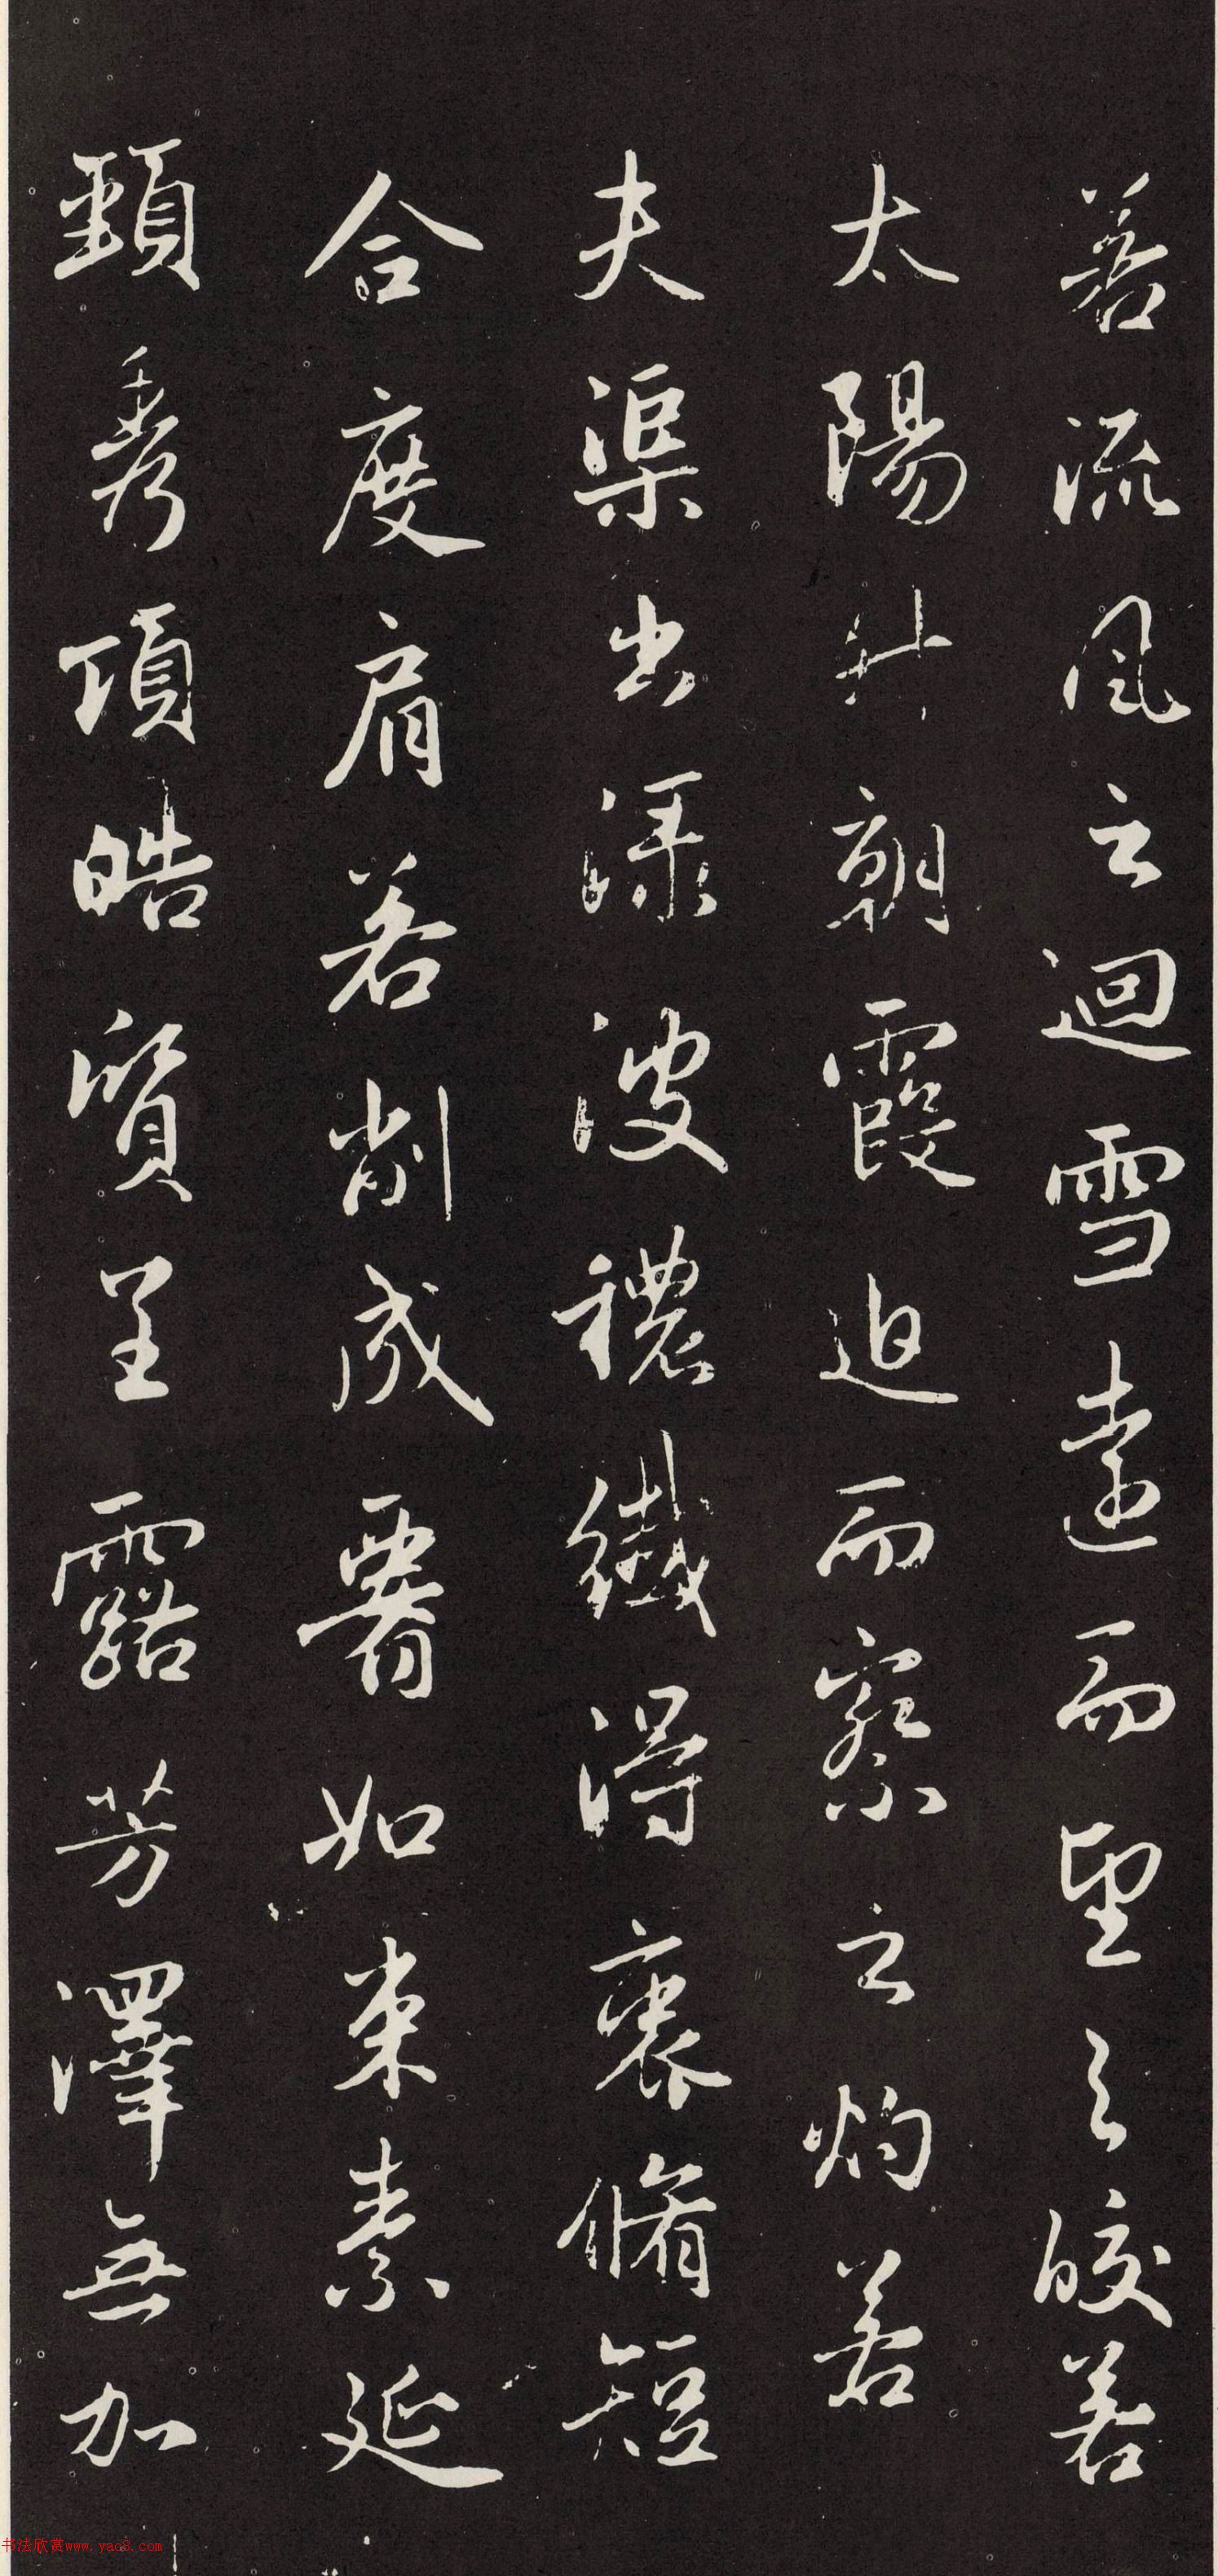 若流風之迴雪遠而望之皎若
太陽升朝霞迫而察之灼若
夫渠出淥波穠纖得衷脩短
合度肩若削成署如束素延
頸秀項皓質呈露芳澤無加
书法欣赏www.yac8.com